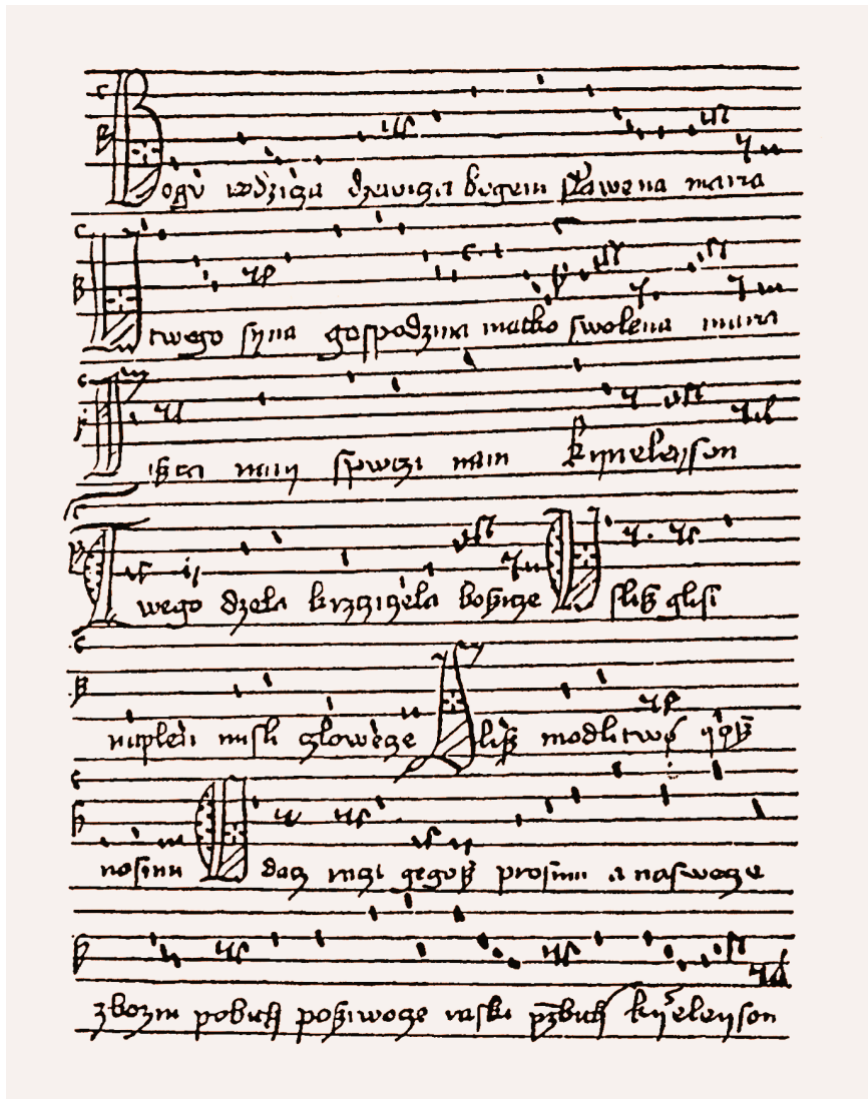 Bogv rodzicza dzewicza bogem slawena maria
U twego syna gospodzina matko swolena maria
Siszczi nam spwczi nam kyrieleyson
Twego dzela krzcziczela bozicze Uslisz glosi
naplen misli czlowecze Slisz modlitwo yøsz
nosimi Odacz raczi gegosz prosimi a naswecze
zbozni pobith posziwocze raski przebith kyrieleyson